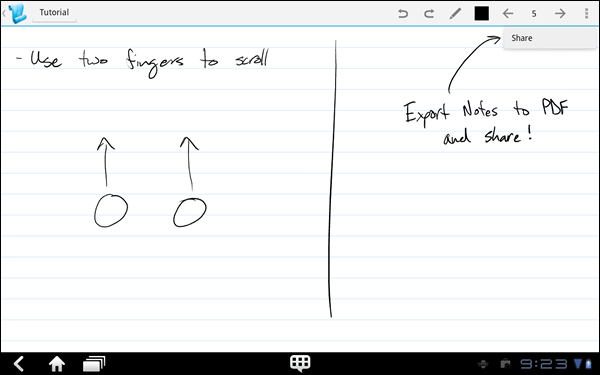 Tutorial
5
Share
- Use two fingers to scroll
Export Notes to PDF
and share!
9:23